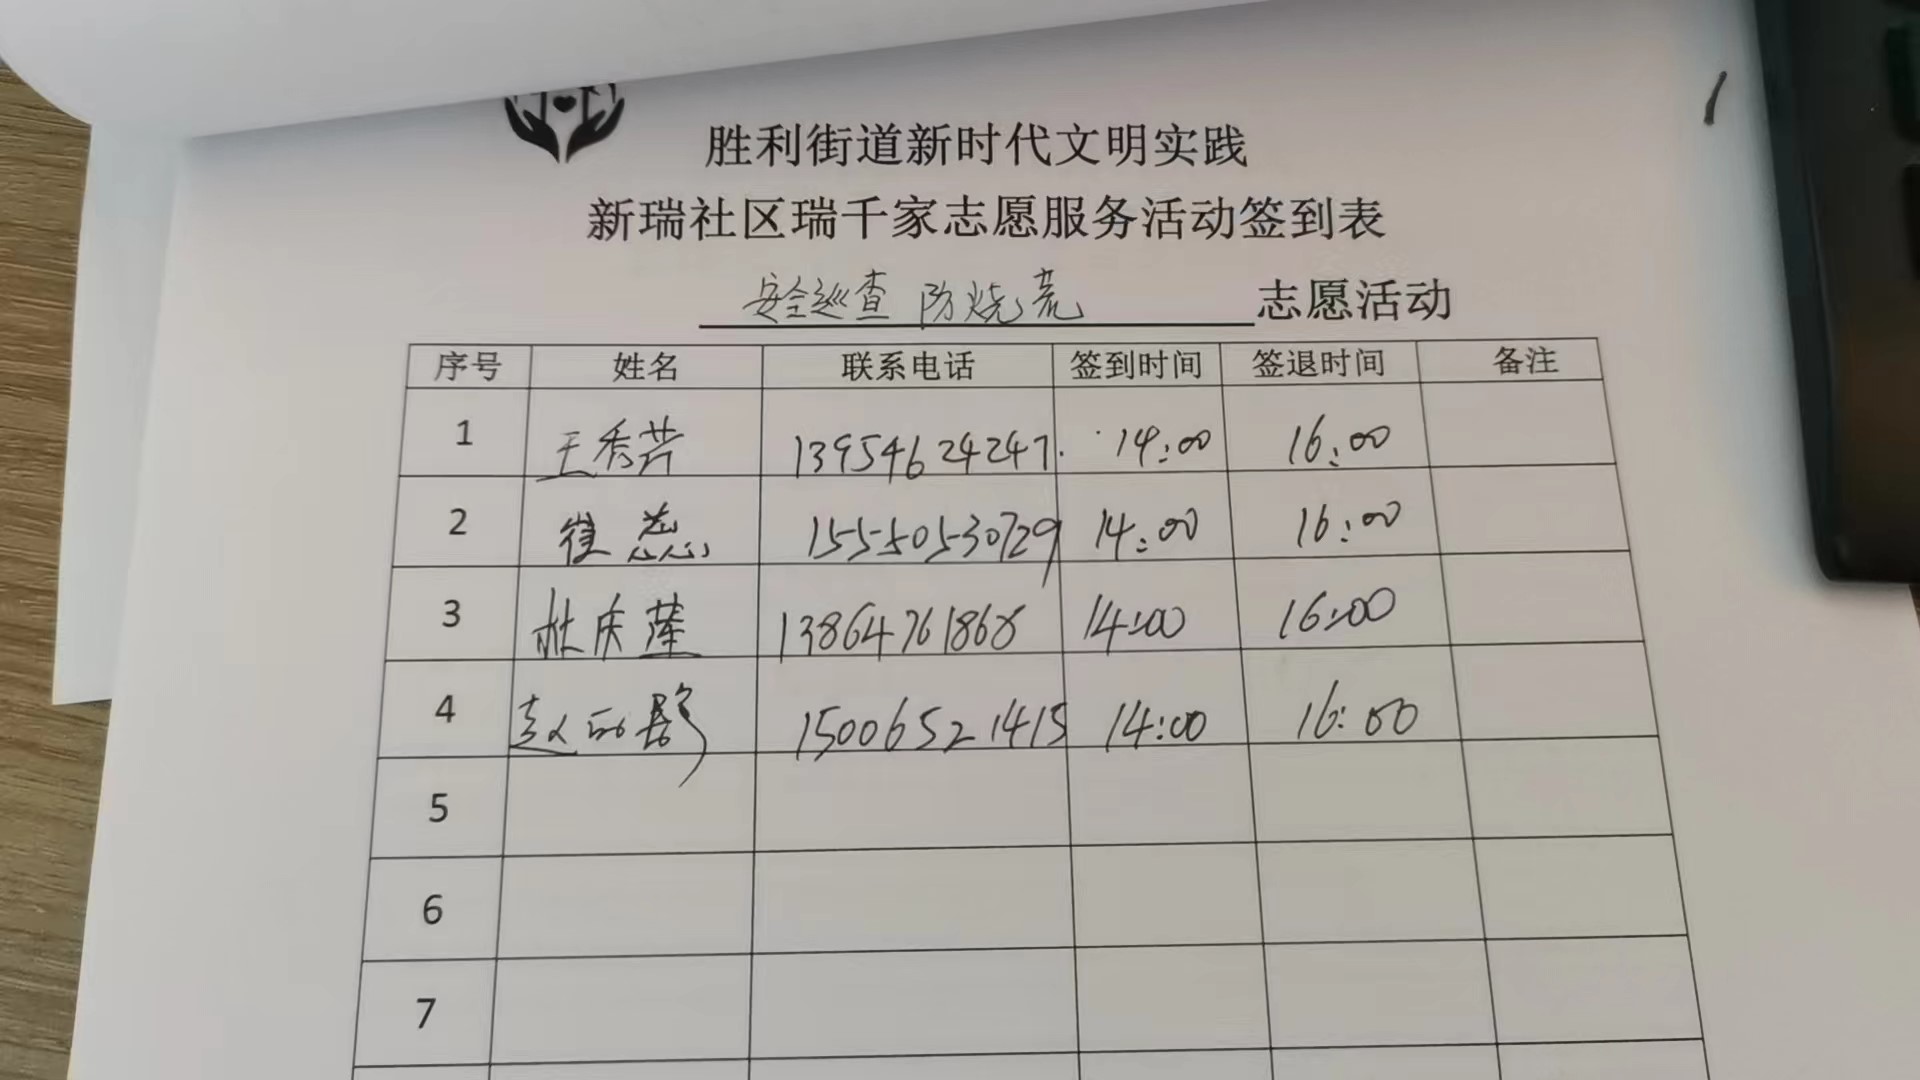 胜利街道新时代文明实践
新瑞社区瑞千家志愿服务活动签到表
安全巡查 防烧荒 志愿活动
序号 姓名 联系电话 签到时间 签退时间 备注
1 王秀芹 13954624247. 14:00 16:00
2 崔蕊 15550530729 14:00 16:00
3 杜庆莲 13864761868 14:00 16:00
4 赵 15006521415 14:00 16:00
5
6
7